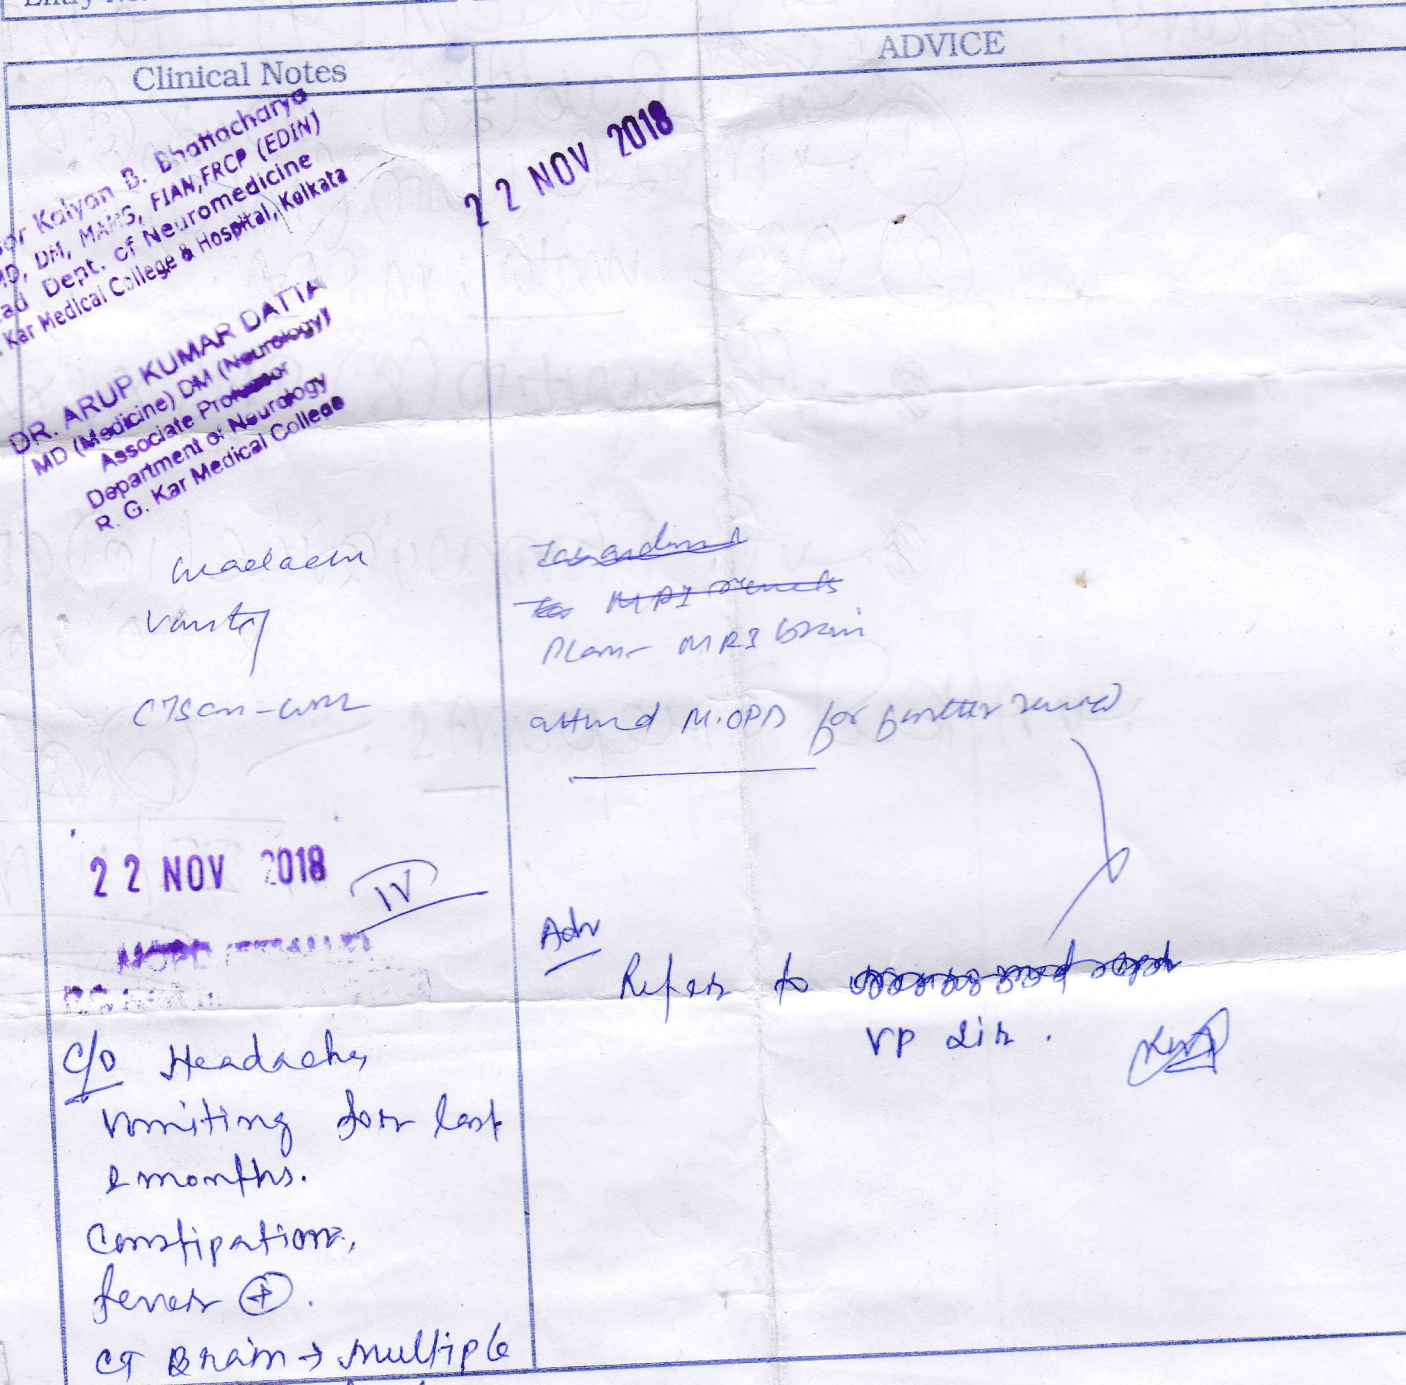 Clinical Notes
ADVICE
Kalyan B. Bhattacharya
DM, MAMS, FIAN, FRCP (EDIN)
Dept. of Neuromedicine
Kar Medical College & Hospital, Kolkata
22 NOV 2018
DR. ARUP KUMAR DATTA
MD (Medicine) DM (Neurology)
Associate Professor
Department of Neurology
R. G. Kar Medical College
MRI
Plan - MRI brain
attend M.OPD for further
22 NOV 2018
IV
C/O Headache,
vomiting for last
2 months.
Constipation,
fever +.
CT Brain → multiple
Adv
Refer to
VP Sir.